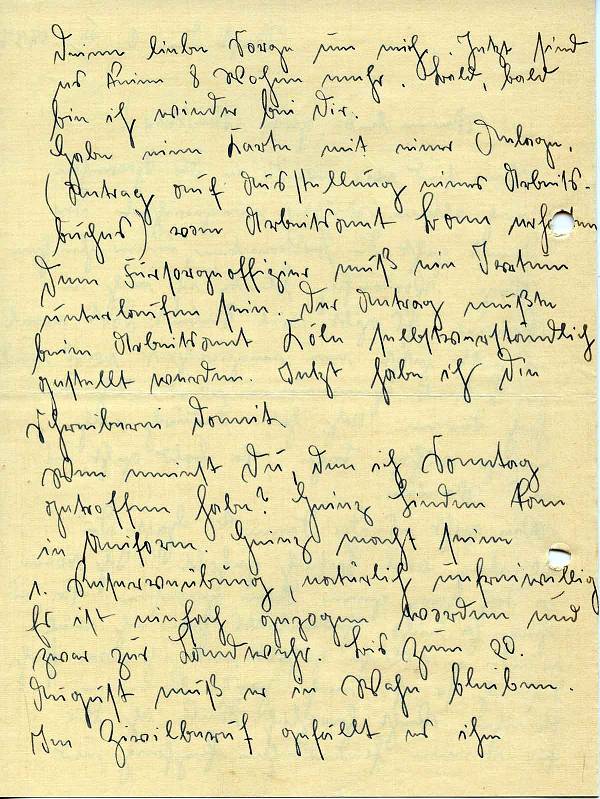 Deine liebe Sorge um mich. Jetzt sind
es keine 8 Wochen mehr. Bald, bald
bin ich wieder bei Dir.
Habe eine Karte mit einer Anlage.
(Antrag auf Ausstellung eines Arbeits-
buches) vom Arbeitsamt Bonn erhalten
Dem Fürsorgeoffizier muß ein Irrtum
unterlaufen sein. Der Antrag müßte
beim Arbeitsamt Köln selbstverständlich
gestellt werden. Jetzt habe ich die
Schreiberei damit.
Wen meinst Du, den ich Sonntag
getroffen habe? Heinz Linden kam
in Uniform. Heinz macht seine
1. Reserveübung, natürlich unfreiwillig
Er ist einfach gezogen worden und
zwar zur Landwehr. Bis zum 20.
August muß er in Wahn bleiben.
Im Zivilberuf gefällt es ihm